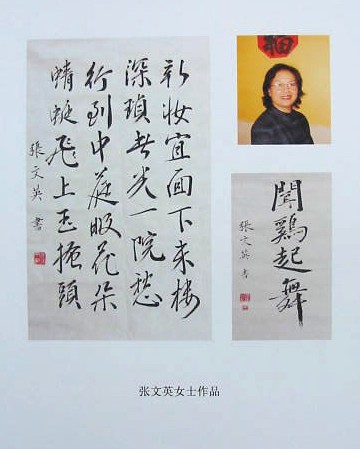 新妆宜面下朱楼
深锁春光一院愁
行到中庭数花朵
蜻蜓飞上玉搔頭
張文英書
福
聞鷄起舞
張文英书
张文英女士作品